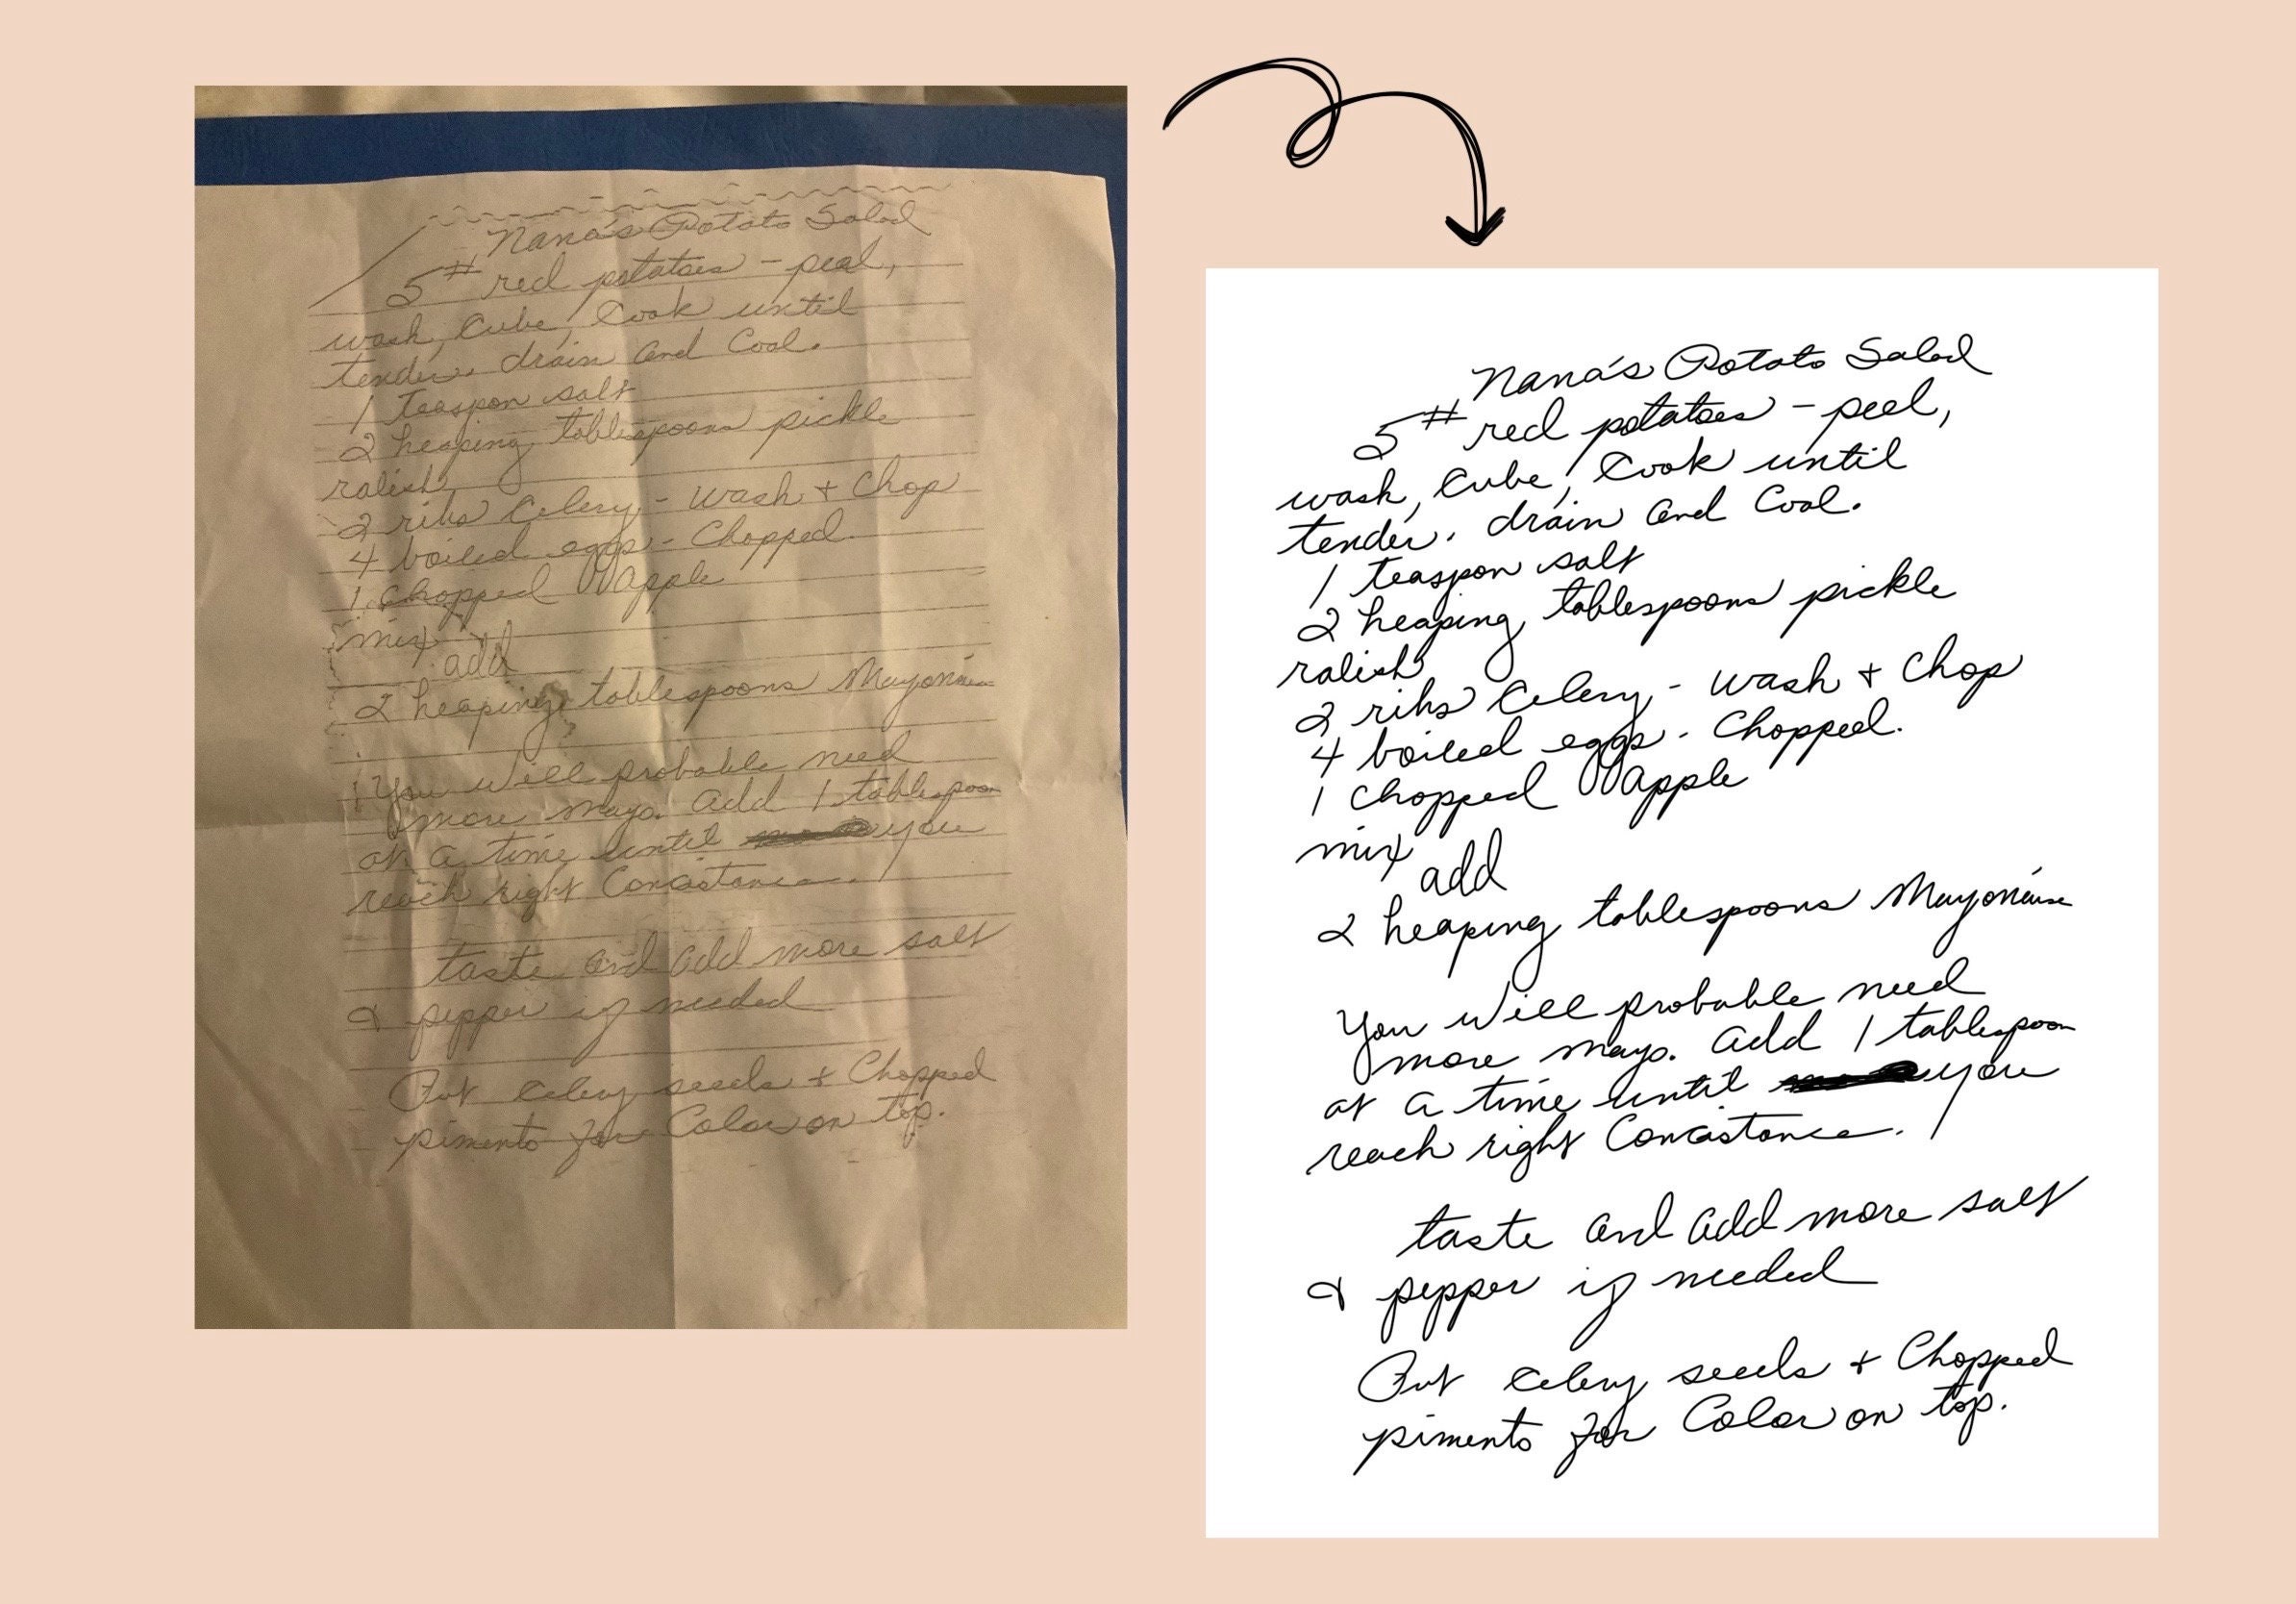 Nana's Potato Salad
5# red potatoes - peal,
wash, Cube, Cook until
tender. drain and Cool.
1 teaspon salt
2 heaping tablespoons pickle
ralish
2 ribs Celery - wash + Chop
4 boiled eggs - Chopped.
1 Chopped Apple
mix
add
2 heaping tablespoons Mayonaise
You will probable need
more mayo. Add 1 tablespoon
at a time until you
reach right Concistance.
taste and add more salt
& pepper if needed
Put Celery seeds + Chopped
pimento for Color on top.
Nana's Potato Salad
5# red potatoes - peel,
wash, Cube, Cook until
tender. drain and Cool.
1 teaspon salt
2 heaping tablespoons pickle
ralish
2 ribs Celery - wash + Chop
4 boiled eggs - Chopped.
1 Chopped Apple
mix
add
2 heaping tablespoons Mayonaise
You will probable need
more mayo. Add 1 tablespoon
at a time until you
reach right Concistance.
taste and add more salt
& pepper if needed
Put Celery seeds + Chopped
pimento for Color on top.